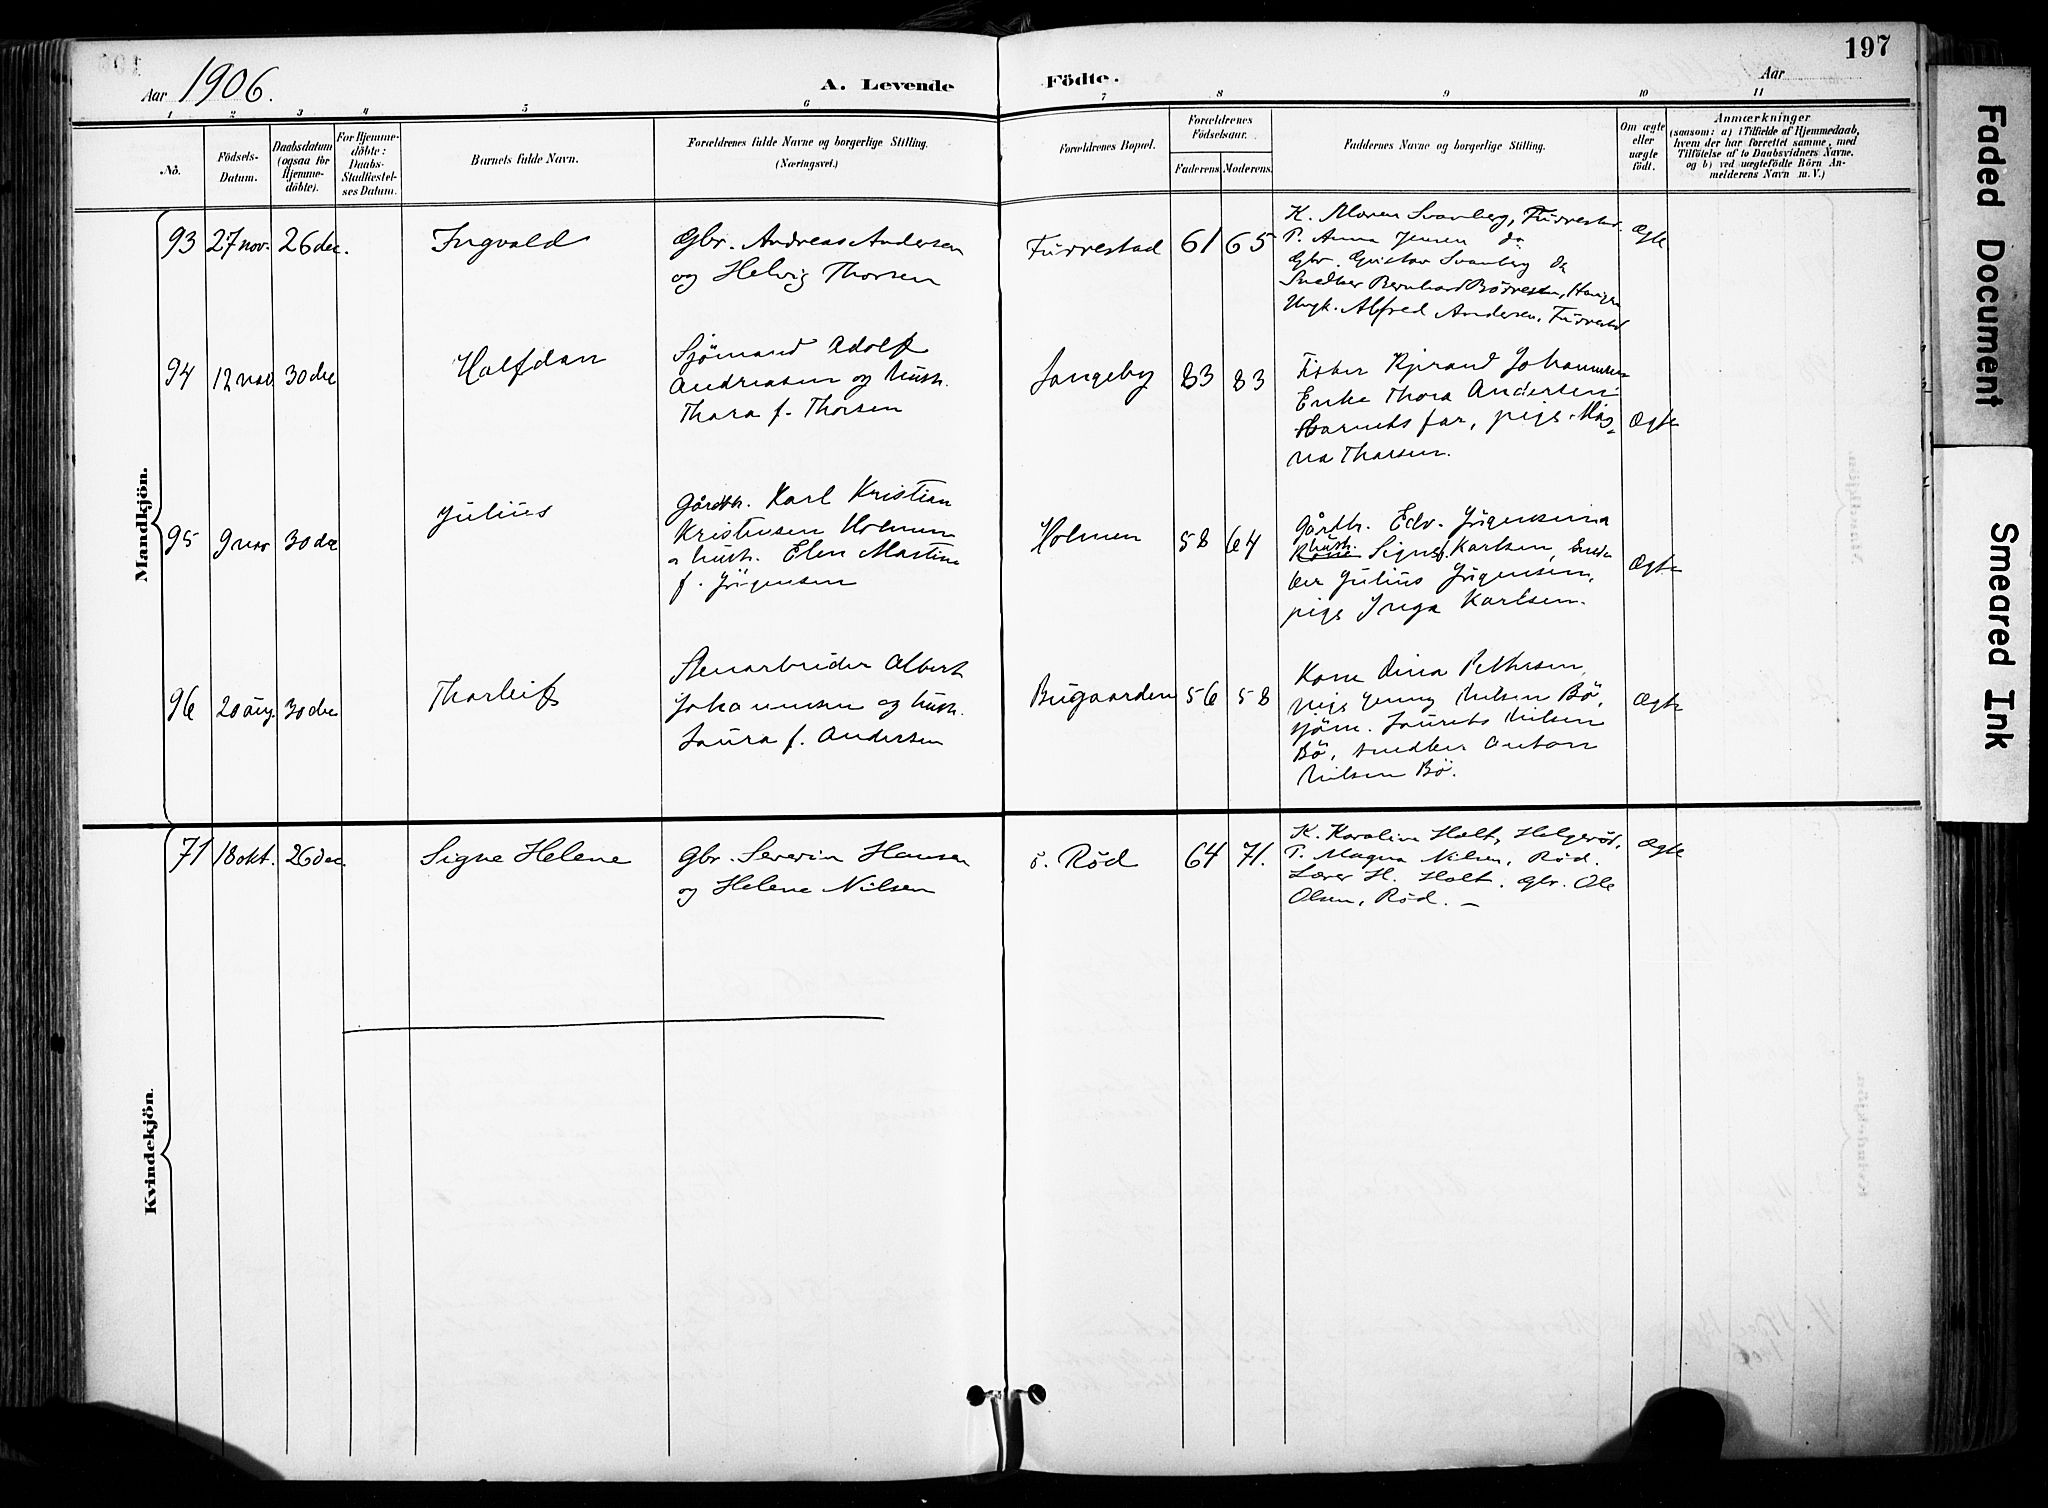 197
Aar 1906.
A. Levende
Födte.
Aar
1 2 3 4 5 6 7 8 9 10 11
No.
Födsels-
Datum.
Daabsdatum
(ogsaa for
Hjemme-
döbte).
For Hjemme-
döbte:
Daabs-
Stadfæstel-
ses Datum.
Barnets fulde Navn.
Forældrenes fulde Navne og borgerlige Stilling.
(Næringsvei.)
Forældrenes Bopæl.
Forældrenes
Födselsaar.
Faderens. Moderens.
Faddernes Navne og borgerlige Stilling.
Om ægte
eller
uægte
födt.
Anmærkninger
(saasom: a) i Tilfælde af Hjemmedaab,
hvem der har forrettet samme, med
Tilföielse af to Daabsvidners Navne,
og b) ved uægtefödte Börn An-
melderens Navn m. V.)
Mandkjön.
93 27 nov. 26 dec.
Ingvald
Gbr. Andreas Andersen
og Helvig Thorsen
Furrestad
61 65
K. Maren Svanberg, Furrestad.
P. Anna Jensen do
Gbr. Gustav Svanberg do
Snedker Bernhard Börresen,
Ungk. Alfred Andersen, Furrestad
Ægte
94 12 nov 30 dec
Halfdan
Sjömand Adolf
Andreasen og hustr.
Thora f. Thorsen
Langeby
83 83
Fisker Johannesen
Enke Thora Andersen
Barnets far, pige Mag-
na Thorsen.
Ægte
95 9 nov 30 dec
Julius
Gårdbr. Karl Kristian
Kristensen Holmen
o hustr. Elen Martine
f. Jörgensen
Holmen
58 64
Gårdbr. Edv. Jörgensen
hustr.
Kone Signe f. Karlsen, Sned-
ker Julius Jörgensen,
pige Inga Karlsen.
Ægte
96 20 aug. 30 dec
Thorleif
Stenarbeider Albert
Johannesen og hustr.
Laura f. Andersen
Bugaarden
56 58
Kone Dina Pettersen,
pige Jenny Nilsen Bö,
sjöm. Laurits Nilsen
Bö, snedker Anton
Nilsen Bö.
Ægte
Kvindekjön.
71 18 okt. 26 dec.
Signe Helene
Gbr. Severin Hansen
og Helene Nilsen
ö. Röd
64 71.
K. Karoline Holt, Helgeröd,
P. Magna Nilsen, Röd.
Lærer H. Holt. Gbr. Ole
Olsen, Röd. —
Ægte
Faded Document
Smeared Ink